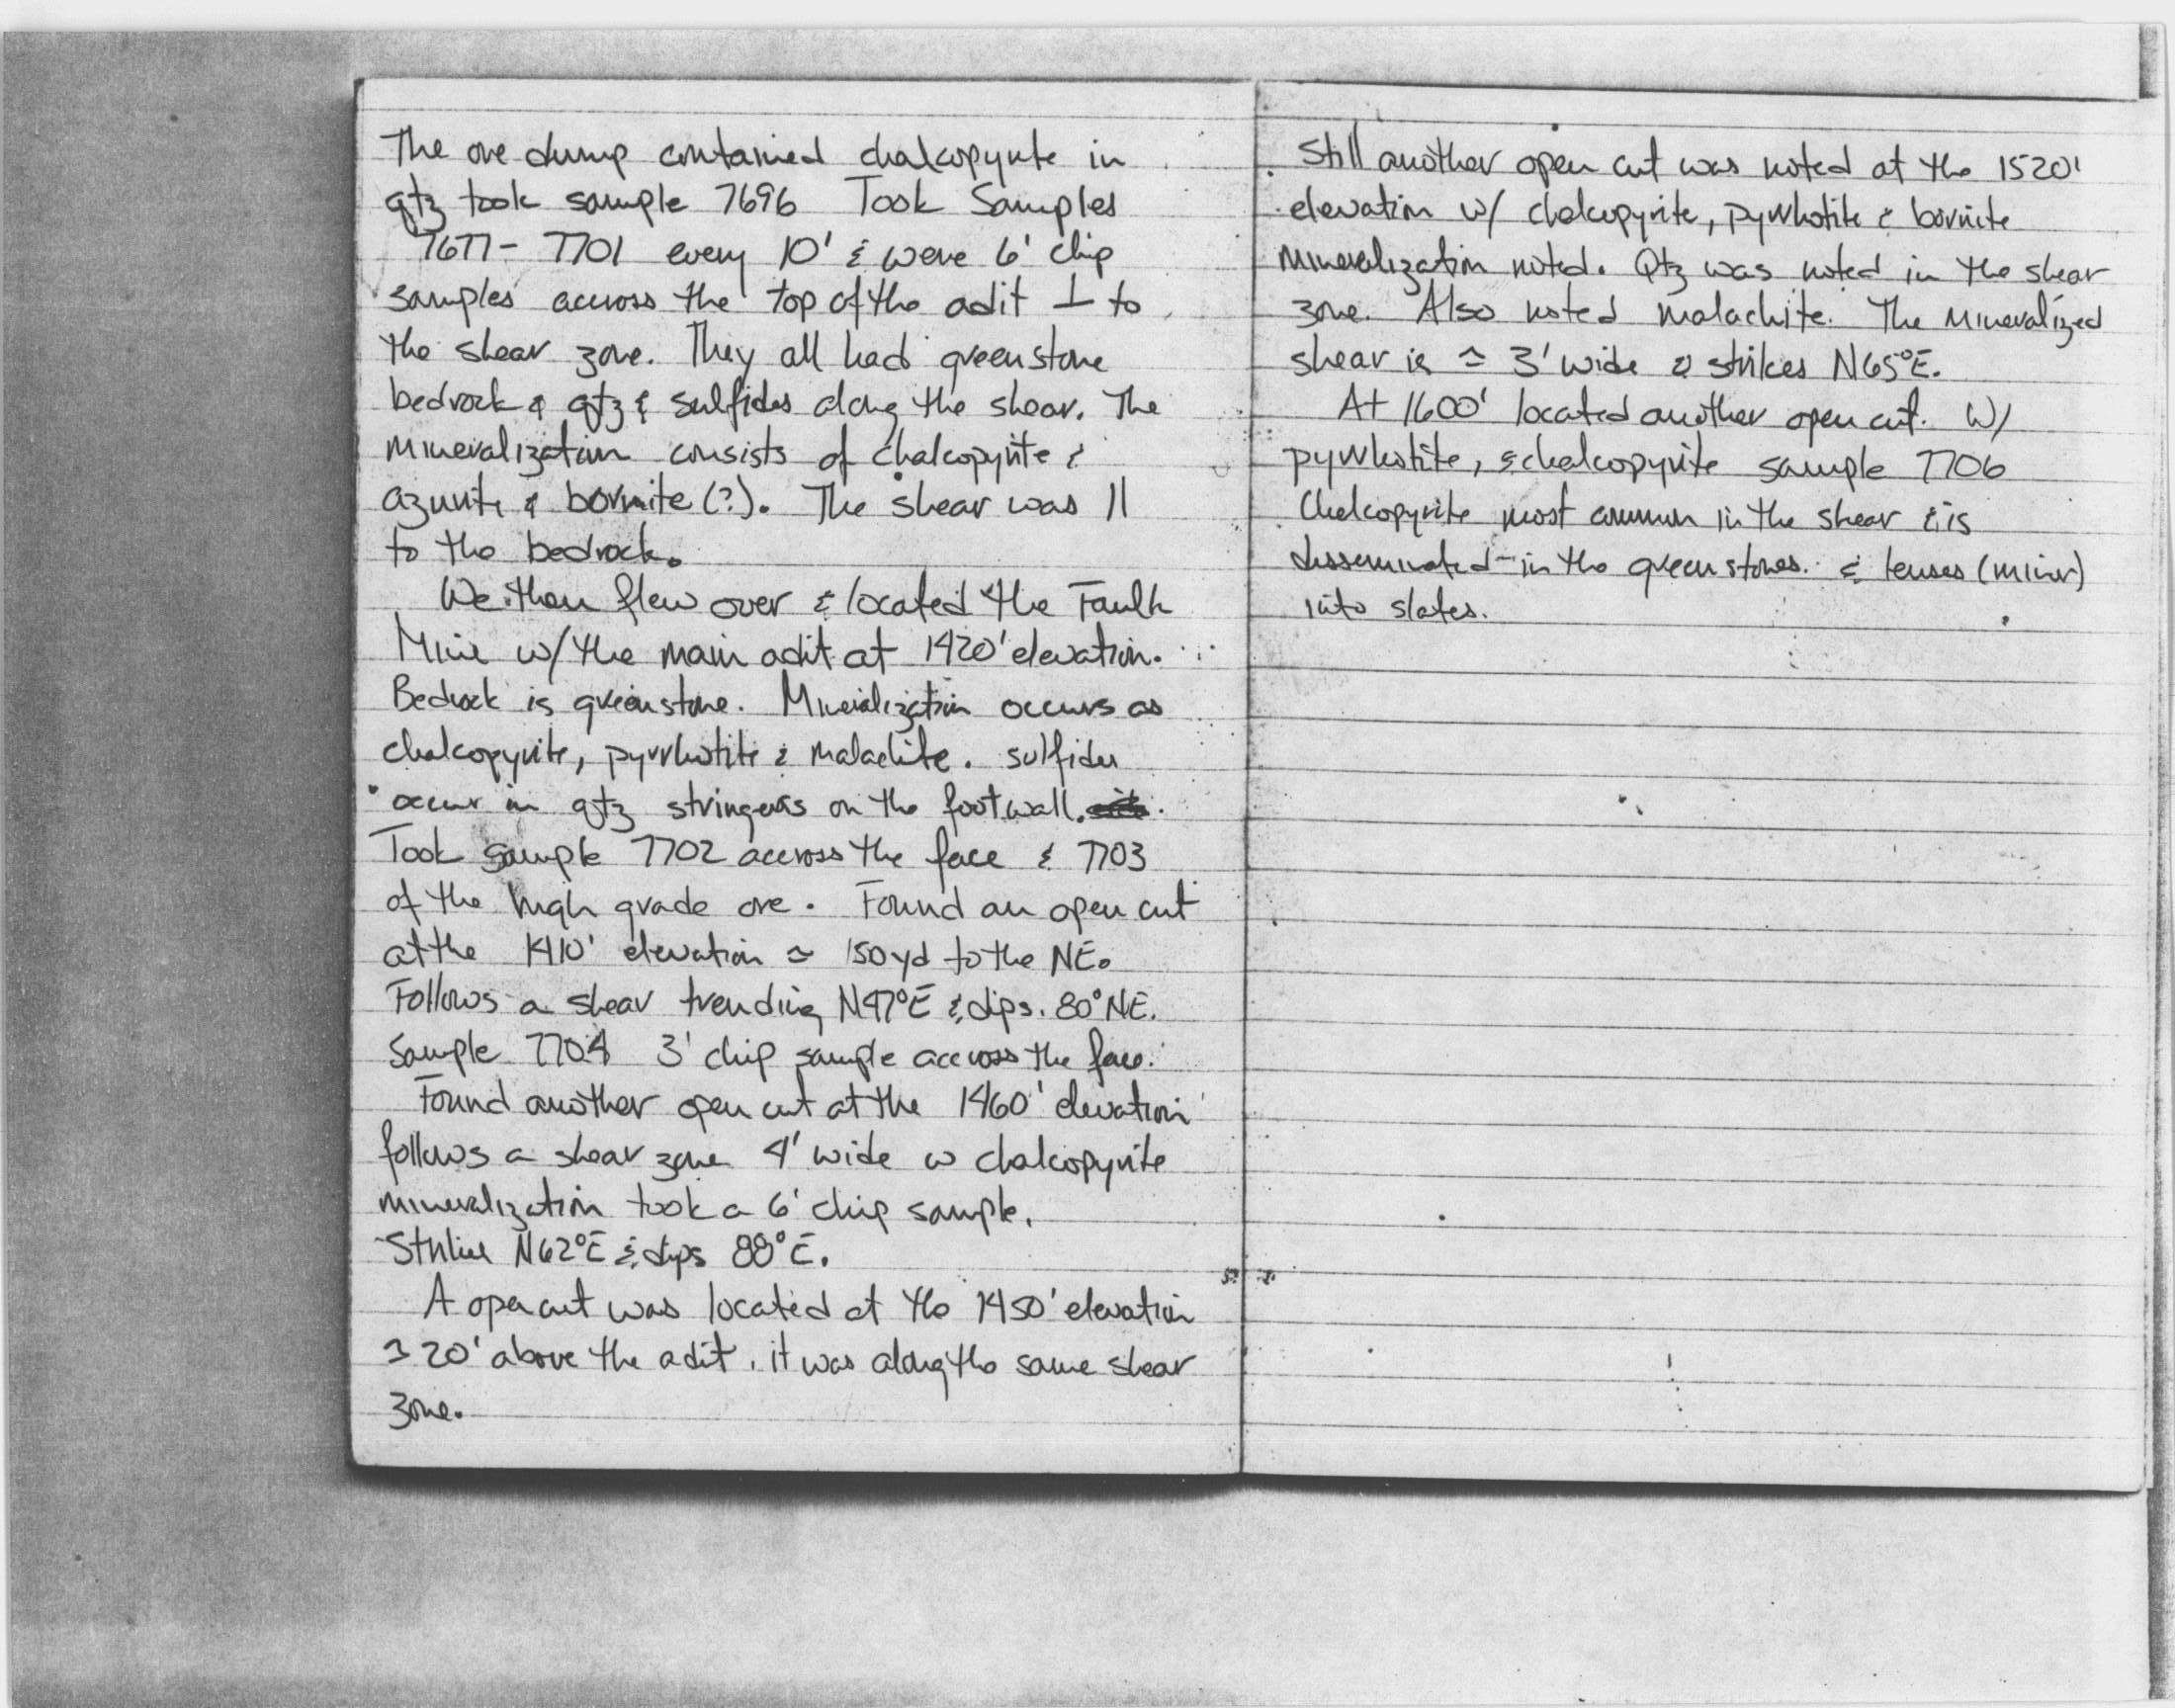 The ore dump contained chalcopyrite in
qtz took sample 7696 Took Samples
7677 - 7701 every 10' & were 6' chip
samples accross the top of the adit ⊥ to
the shear zone. They all had greenstone
bedrock & qtz & sulfides along the shear. The
mineralization consists of chalcopyrite &
azurite & bornite (?). The shear was ||
to the bedrock.
We then flew over & located the Faulk
Mine w/ the main adit at 1420' elevation.
Bedrock is greenstone. Mineralization occurs as
chalcopyrite, pyrrhotite & malachite. sulfides
occur in qtz stringers on the footwall.
Took sample 7702 accross the face & 7703
of the high grade ore. Found an open cut
at the 1410' elevation ≃ 150 yd to the NE.
Follows a shear trending N47°E & dips. 80° NE.
Sample 7704 3' chip sample accross the face.
Found another open cut at the 1460' elevation
follows a shear zone 4' wide w chalcopyrite
mineralization took a 6' chip sample.
Strike N62°E & dips 88°E.
A open cut was located at the 1450' elevation
≃ 20' above the adit. it was along the same shear
zone.
Still another open cut was noted at the 1520'
elevation w/ chalcopyrite, pyrrhotite & bornite
mineralization noted. Qtz was noted in the shear
zone. Also noted malachite. The mineralized
shear is ≃ 3' wide & strikes N65°E.
At 1600' located another open cut. W/
pyrrhotite, & chalcopyrite sample 7706
Chalcopyrite most common in the shear & is
disseminated in the greenstones. & lenses (minor)
into slates.